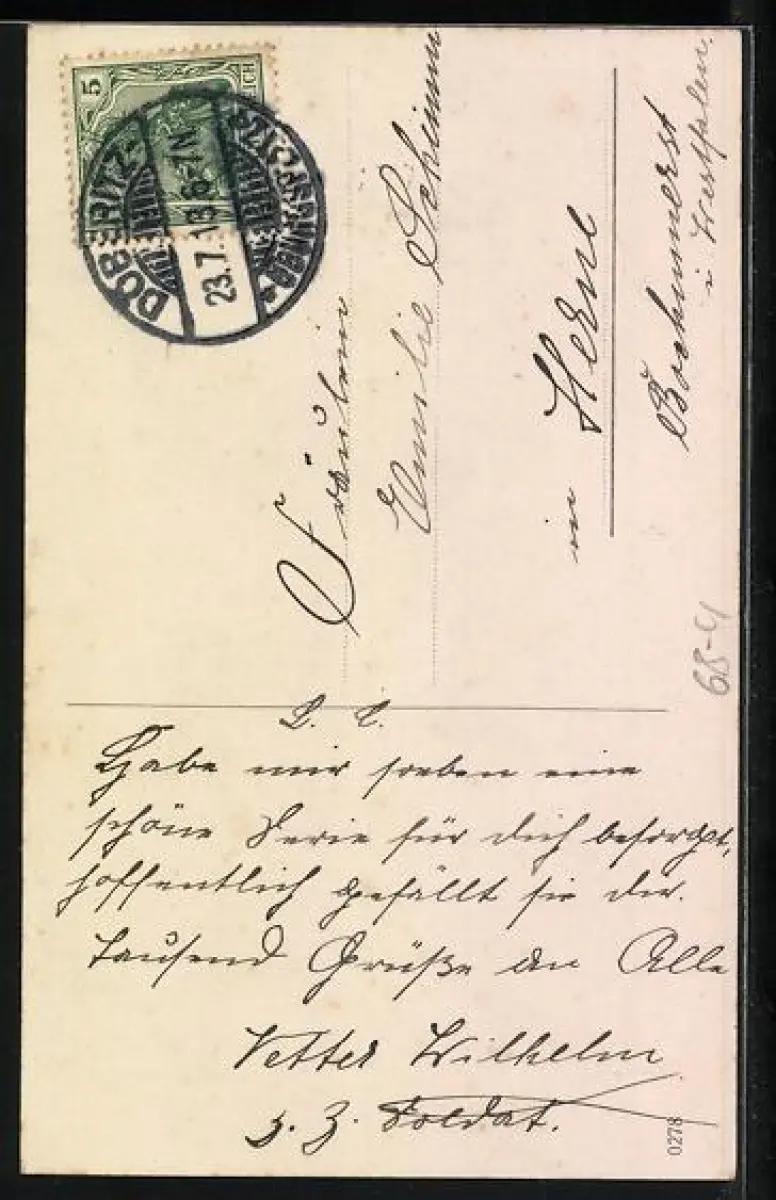 5
REICH
DÖBERITZ-
23.7.13.6-7N.
Fräulein
Emilie
in Herne
i Westfalen.
68-4
L. E.
Habe mir soeben eine
schöne Serie für dich besorgt,
hoffentlich gefällt sie dir.
Tausend Grüße an Alle
Vetter Wilhelm
z. Z. Soldat.
0278